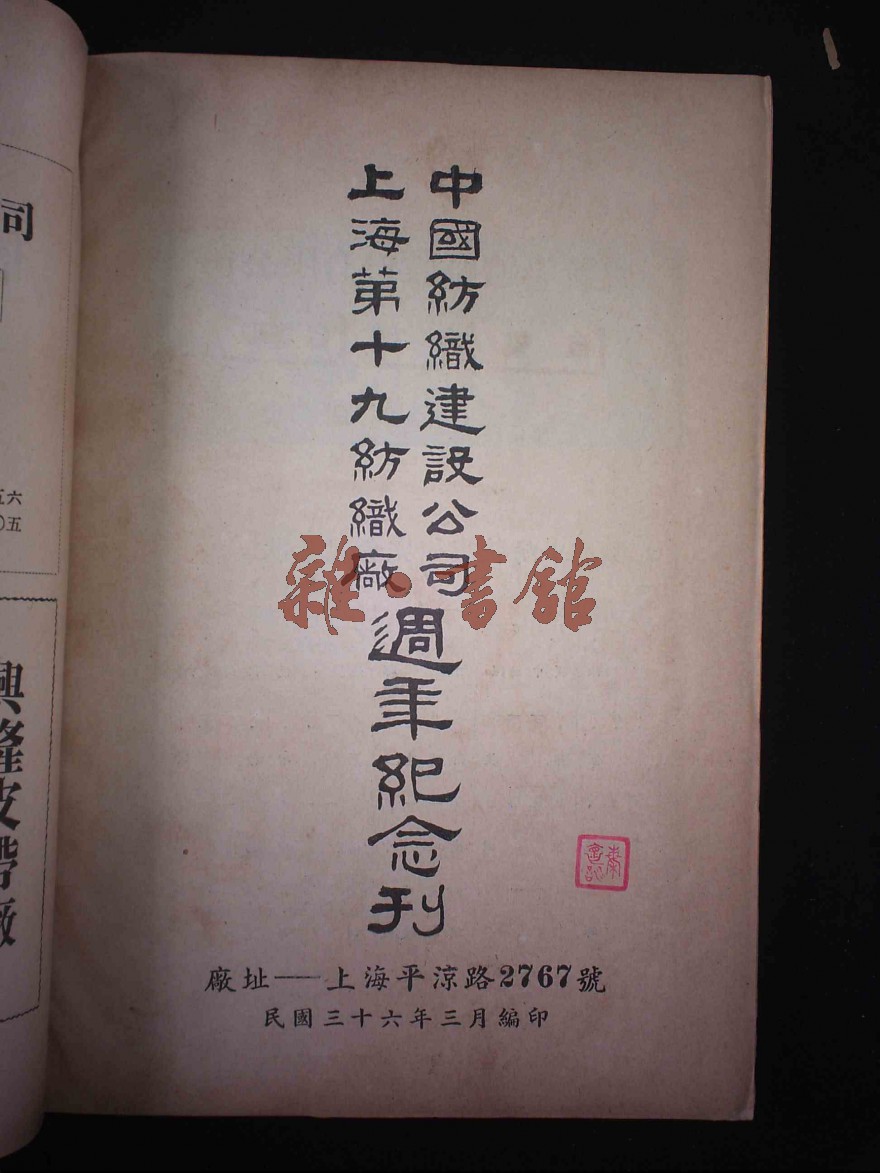 中國紡織建設公司
上海第十九紡織廠
週年紀念刊
廠址——上海平涼路2767號
民國三十六年三月編印
雜·書館
司
五六
〇五
興隆皮帶廠